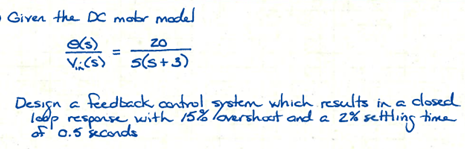 Given the DC motor model
θ(s) / Vin(s) = 20 / s(s+3)
Design a feedback control system which results in a closed
loop response with 15% overshoot and a 2% settling time
of 0.5 seconds